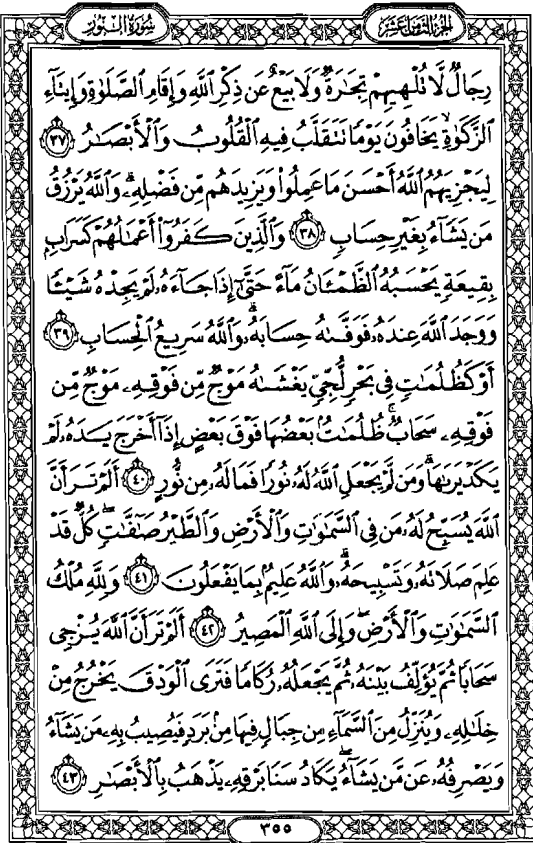 الجزء الثامن عشر
سورة النور
رِجَالٌ لَّا تُلْهِيهِمْ تِجَٰرَةٌ وَلَا بَيْعٌ عَن ذِكْرِ ٱللَّهِ وَإِقَامِ ٱلصَّلَوٰةِ وَإِيتَآءِ
ٱلزَّكَوٰةِ ۙ يَخَافُونَ يَوْمًا تَتَقَلَّبُ فِيهِ ٱلْقُلُوبُ وَٱلْأَبْصَٰرُ ٣٧
لِيَجْزِيَهُمُ ٱللَّهُ أَحْسَنَ مَا عَمِلُوا۟ وَيَزِيدَهُم مِّن فَضْلِهِۦ ۗ وَٱللَّهُ يَرْزُقُ
مَن يَشَآءُ بِغَيْرِ حِسَابٍ ٣٨ وَٱلَّذِينَ كَفَرُوٓا۟ أَعْمَٰلُهُمْ كَسَرَابٍۭ
بِقِيعَةٍ يَحْسَبُهُ ٱلظَّمْـَٔانُ مَآءً حَتَّىٰٓ إِذَا جَآءَهُۥ لَمْ يَجِدْهُ شَيْـًٔا
وَوَجَدَ ٱللَّهَ عِندَهُۥ فَوَفَّىٰهُ حِسَابَهُۥ ۗ وَٱللَّهُ سَرِيعُ ٱلْحِسَابِ ٣٩
أَوْ كَظُلُمَٰتٍ فِى بَحْرٍ لُّجِّىٍّ يَغْشَىٰهُ مَوْجٌ مِّن فَوْقِهِۦ مَوْجٌ مِّن
فَوْقِهِۦ سَحَابٌ ۚ ظُلُمَٰتٌۢ بَعْضُهَا فَوْقَ بَعْضٍ إِذَآ أَخْرَجَ يَدَهُۥ لَمْ
يَكَدْ يَرَىٰهَا ۗ وَمَن لَّمْ يَجْعَلِ ٱللَّهُ لَهُۥ نُورًا فَمَا لَهُۥ مِن نُّورٍ ٤٠ أَلَمْ تَرَ أَنَّ
ٱللَّهَ يُسَبِّحُ لَهُۥ مَن فِى ٱلسَّمَٰوَٰتِ وَٱلْأَرْضِ وَٱلطَّيْرُ صَٰٓفَّٰتٍ ۖ كُلٌّ قَدْ
عَلِمَ صَلَاتَهُۥ وَتَسْبِيحَهُۥ ۗ وَٱللَّهُ عَلِيمٌۢ بِمَا يَفْعَلُونَ ٤١ وَلِلَّهِ مُلْكُ
ٱلسَّمَٰوَٰتِ وَٱلْأَرْضِ ۖ وَإِلَى ٱللَّهِ ٱلْمَصِيرُ ٤٢ أَلَمْ تَرَ أَنَّ ٱللَّهَ يُزْجِى
سَحَابًا ثُمَّ يُؤَلِّفُ بَيْنَهُۥ ثُمَّ يَجْعَلُهُۥ رُكَامًا فَتَرَى ٱلْوَدْقَ يَخْرُجُ مِنْ
خِلَٰلِهِۦ وَيُنَزِّلُ مِنَ ٱلسَّمَآءِ مِن جِبَالٍ فِيهَا مِنۢ بَرَدٍ فَيُصِيبُ بِهِۦ مَن يَشَآءُ
وَيَصْرِفُهُۥ عَن مَّن يَشَآءُ ۖ يَكَادُ سَنَا بَرْقِهِۦ يَذْهَبُ بِٱلْأَبْصَٰرِ ٤٣
٣٥٥